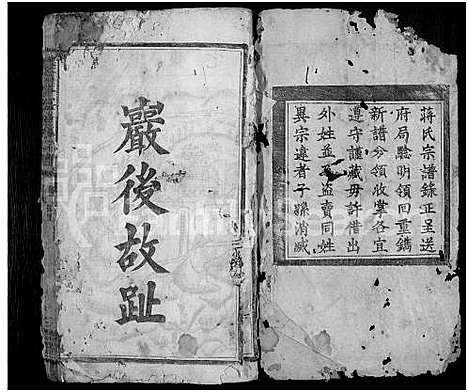 蔣氏宗譜錄正呈送
府局驗明領回重鐫
新譜分領收掌各宜
遵守謹藏毋許借出
外姓並不盜賣同姓
異宗違者子孫消滅
巖後故趾